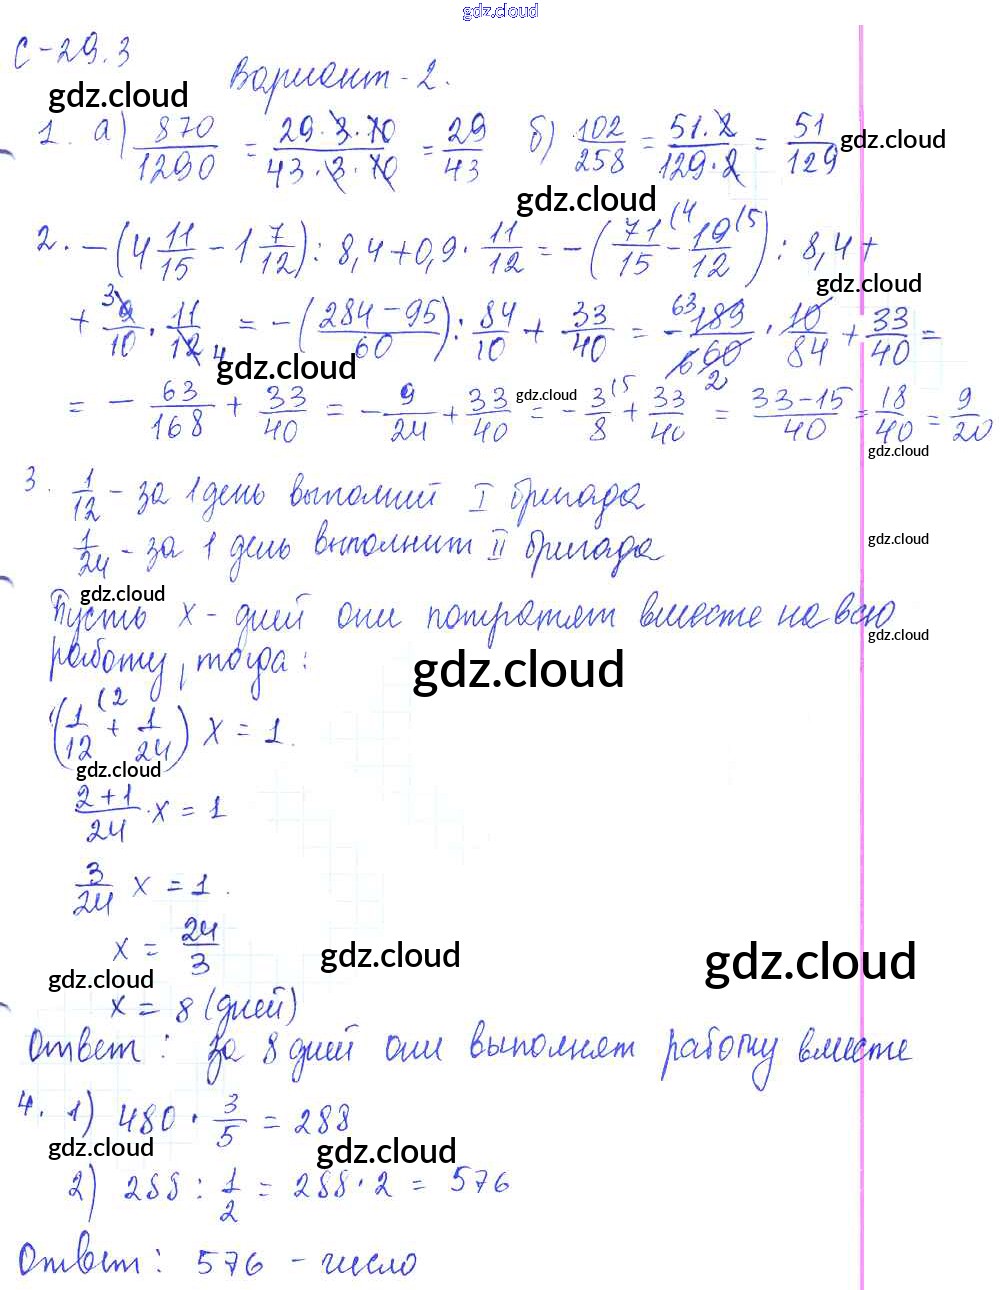 gdz.cloud
С-29.3
gdz.cloud Вариант-2.
1. а) 870/1290 = 29·3·10/43·3·10 = 29/43 б) 102/258 = 51·2/129·2 = 51/129 gdz.cloud
gdz.cloud
2. -(4 11/15 - 1 7/12) : 8,4 + 0,9 · 11/12 = -(71/15 (4 - 19/12 (5) : 8,4 +
gdz.cloud
+ 3 9/10 · 11/12 4 = -(284-95/60) : 84/10 + 33/40 = - 63 189/660 2 · 10/84 + 33/40 =
gdz.cloud
= - 63/168 + 33/40 = - 9/24 + 33/40 = - 3/8 (5 + 33/40 = 33-15/40 = 18/40 = 9/20
gdz.cloud
gdz.cloud
3. 1/12 - за 1 день выполний I бригада
1/24 - за 1 день выполнит II бригада
gdz.cloud
gdz.cloud
Пусть x - дней они потратят вместе на всю
gdz.cloud
работу, тогда:
gdz.cloud
(1/12 (2 + 1/24) x = 1.
gdz.cloud
2+1/24 · x = 1
3/24 x = 1.
x = 24/3
gdz.cloud gdz.cloud
gdz.cloud
x = 8 (дней)
Ответ: за 8 дней они выполнят работу вместе
4. 1) 480 · 3/5 = 288
gdz.cloud gdz.cloud
2) 288 : 1/2 = 288·2 = 576
Ответ: 576 - число